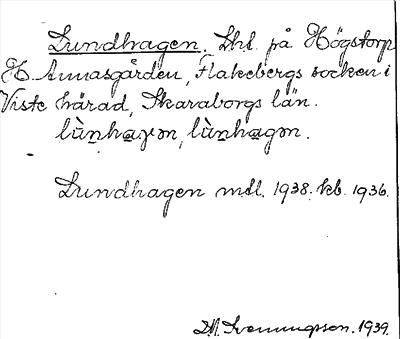 Lundhagen. Lht. på Högstorp
H. Annasgården, Flakebergs socken i
Viste härad, Skaraborgs län.
lùn̲ha̲gən, lùn̲ha̲gən.
Lundhagen mtl. 1938. kb. 1936.
Svenningsson. 1939.